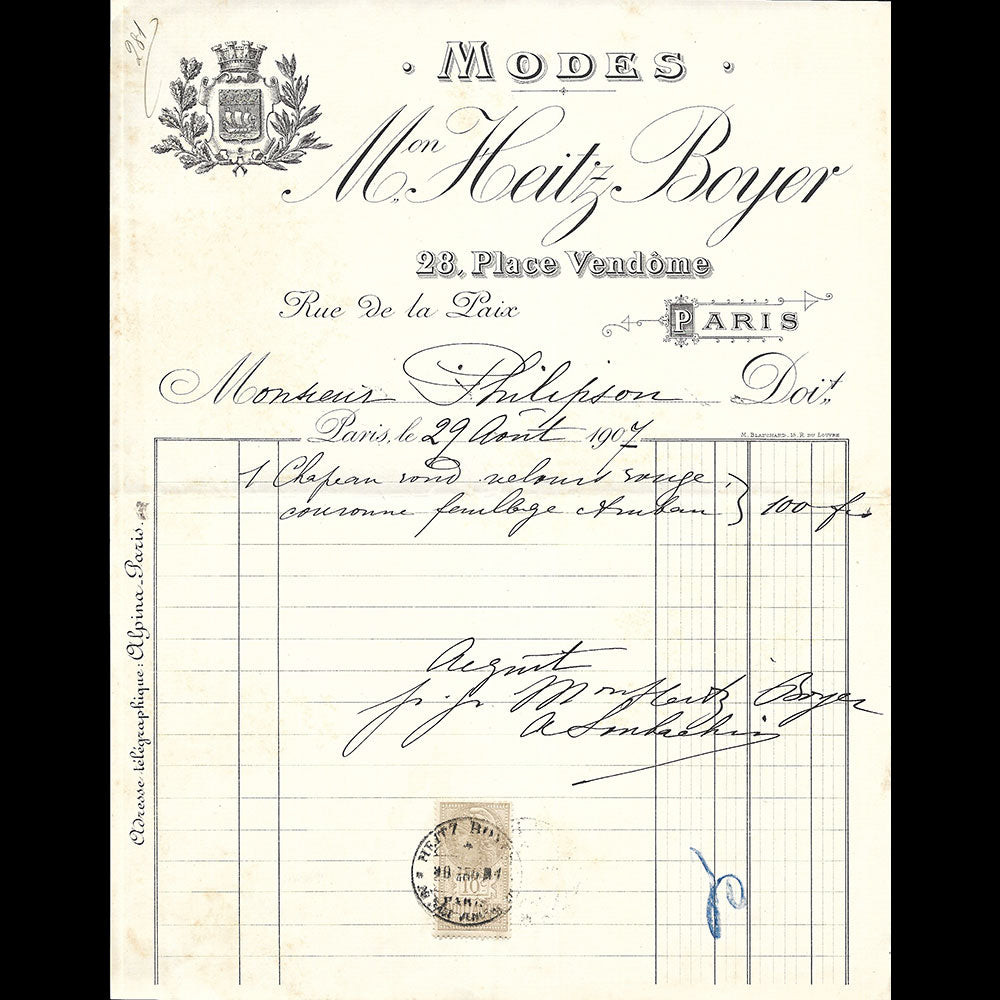 281
MODES
Mon Heitz-Boyer
28, Place Vendôme
Rue de la Paix
PARIS
Monsieur Philipson Doit
Paris, le 29 Août 1907
M. BLANCHARD, 18, R. DU LOUVRE
1 Chapeau rond velours rouge
couronne feuillage & ruban } 100 frs
Adresse télégraphique: Alpina-Paris.
Acquit
p. p. Mon Heitz Boyer
HEITZ BOYE
10
PARIS